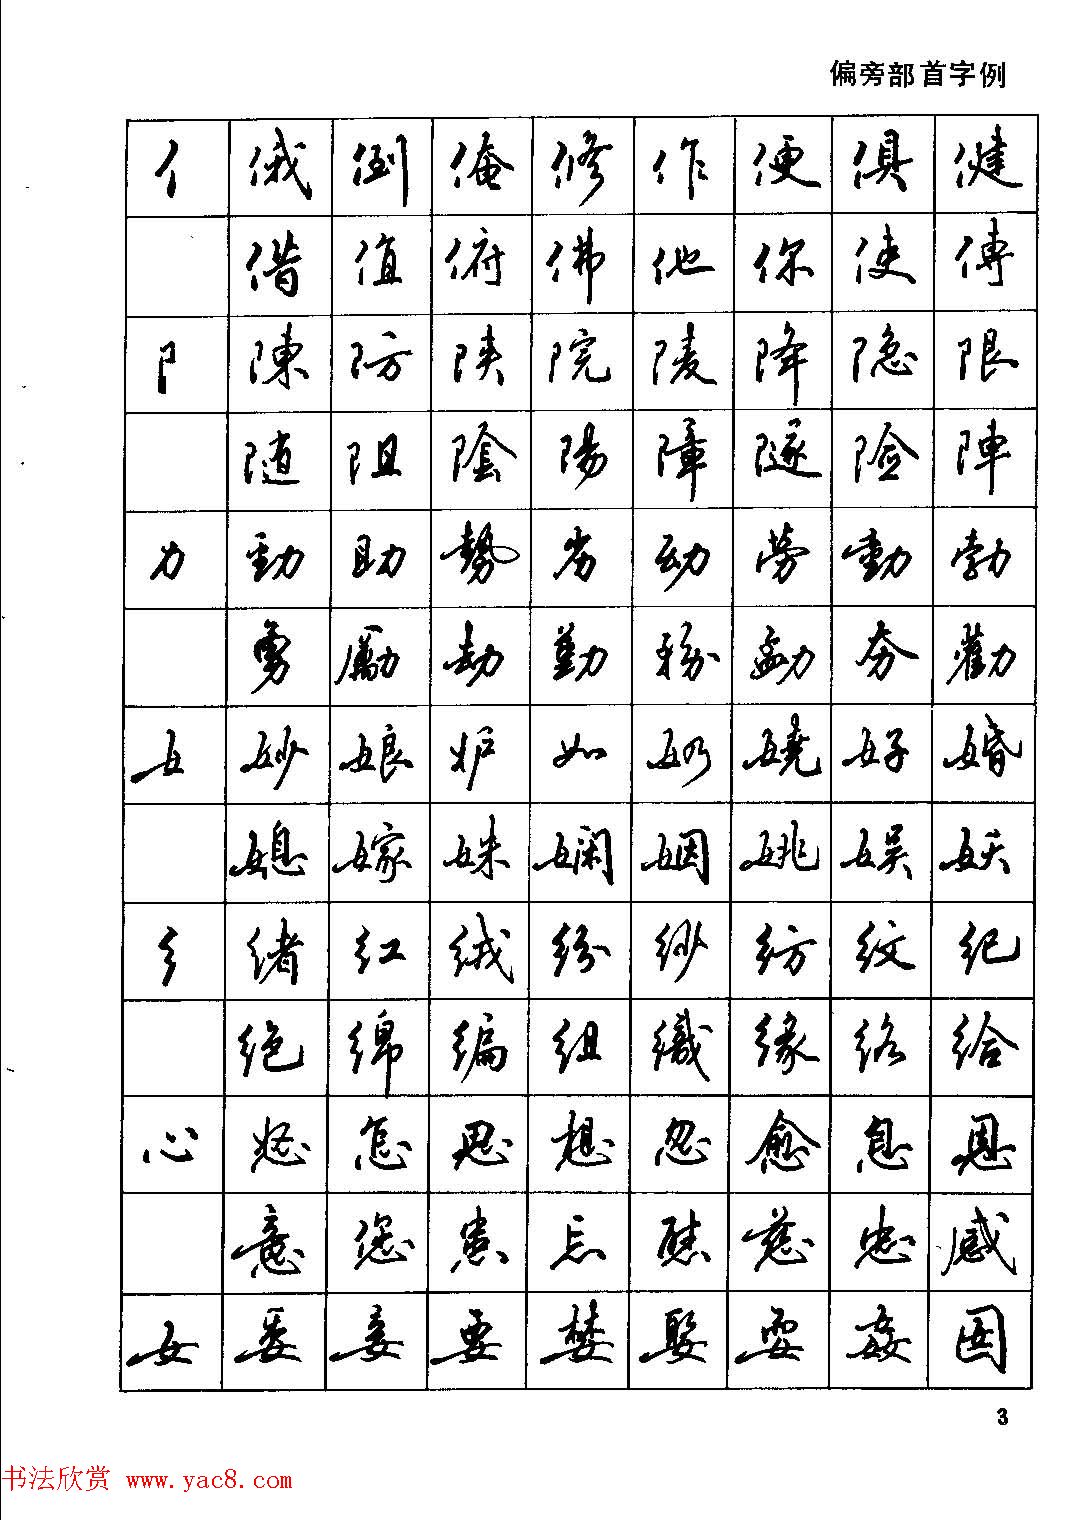 偏旁部首字例
亻 俄 倒 俺 修 作 便 俱 健
借 值 俯 佛 他 你 使 傅
阝 陳 防 陕 院 陵 降 隐 限
随 阻 陰 陽 障 隧 险 陣
力 動 助 勢 劣 幼 劳 勳 勃
勇 勵 劫 勤 務 勐 夯 勸
女 妙 娘 妒 如 娜 娆 好 婚
媳 嫁 姝 娴 姻 姚 娱 妖
纟 绪 红 绒 纷 纱 纺 纹 纪
绝 绵 编 组 織 缘 络 给
心 怒 怎 思 想 忽 愈 息 恩
意 您 患 忘 慈 忠 感
女 委 妾 要 婪 娶 耍 姦
3
书法欣赏 www.yac8.com